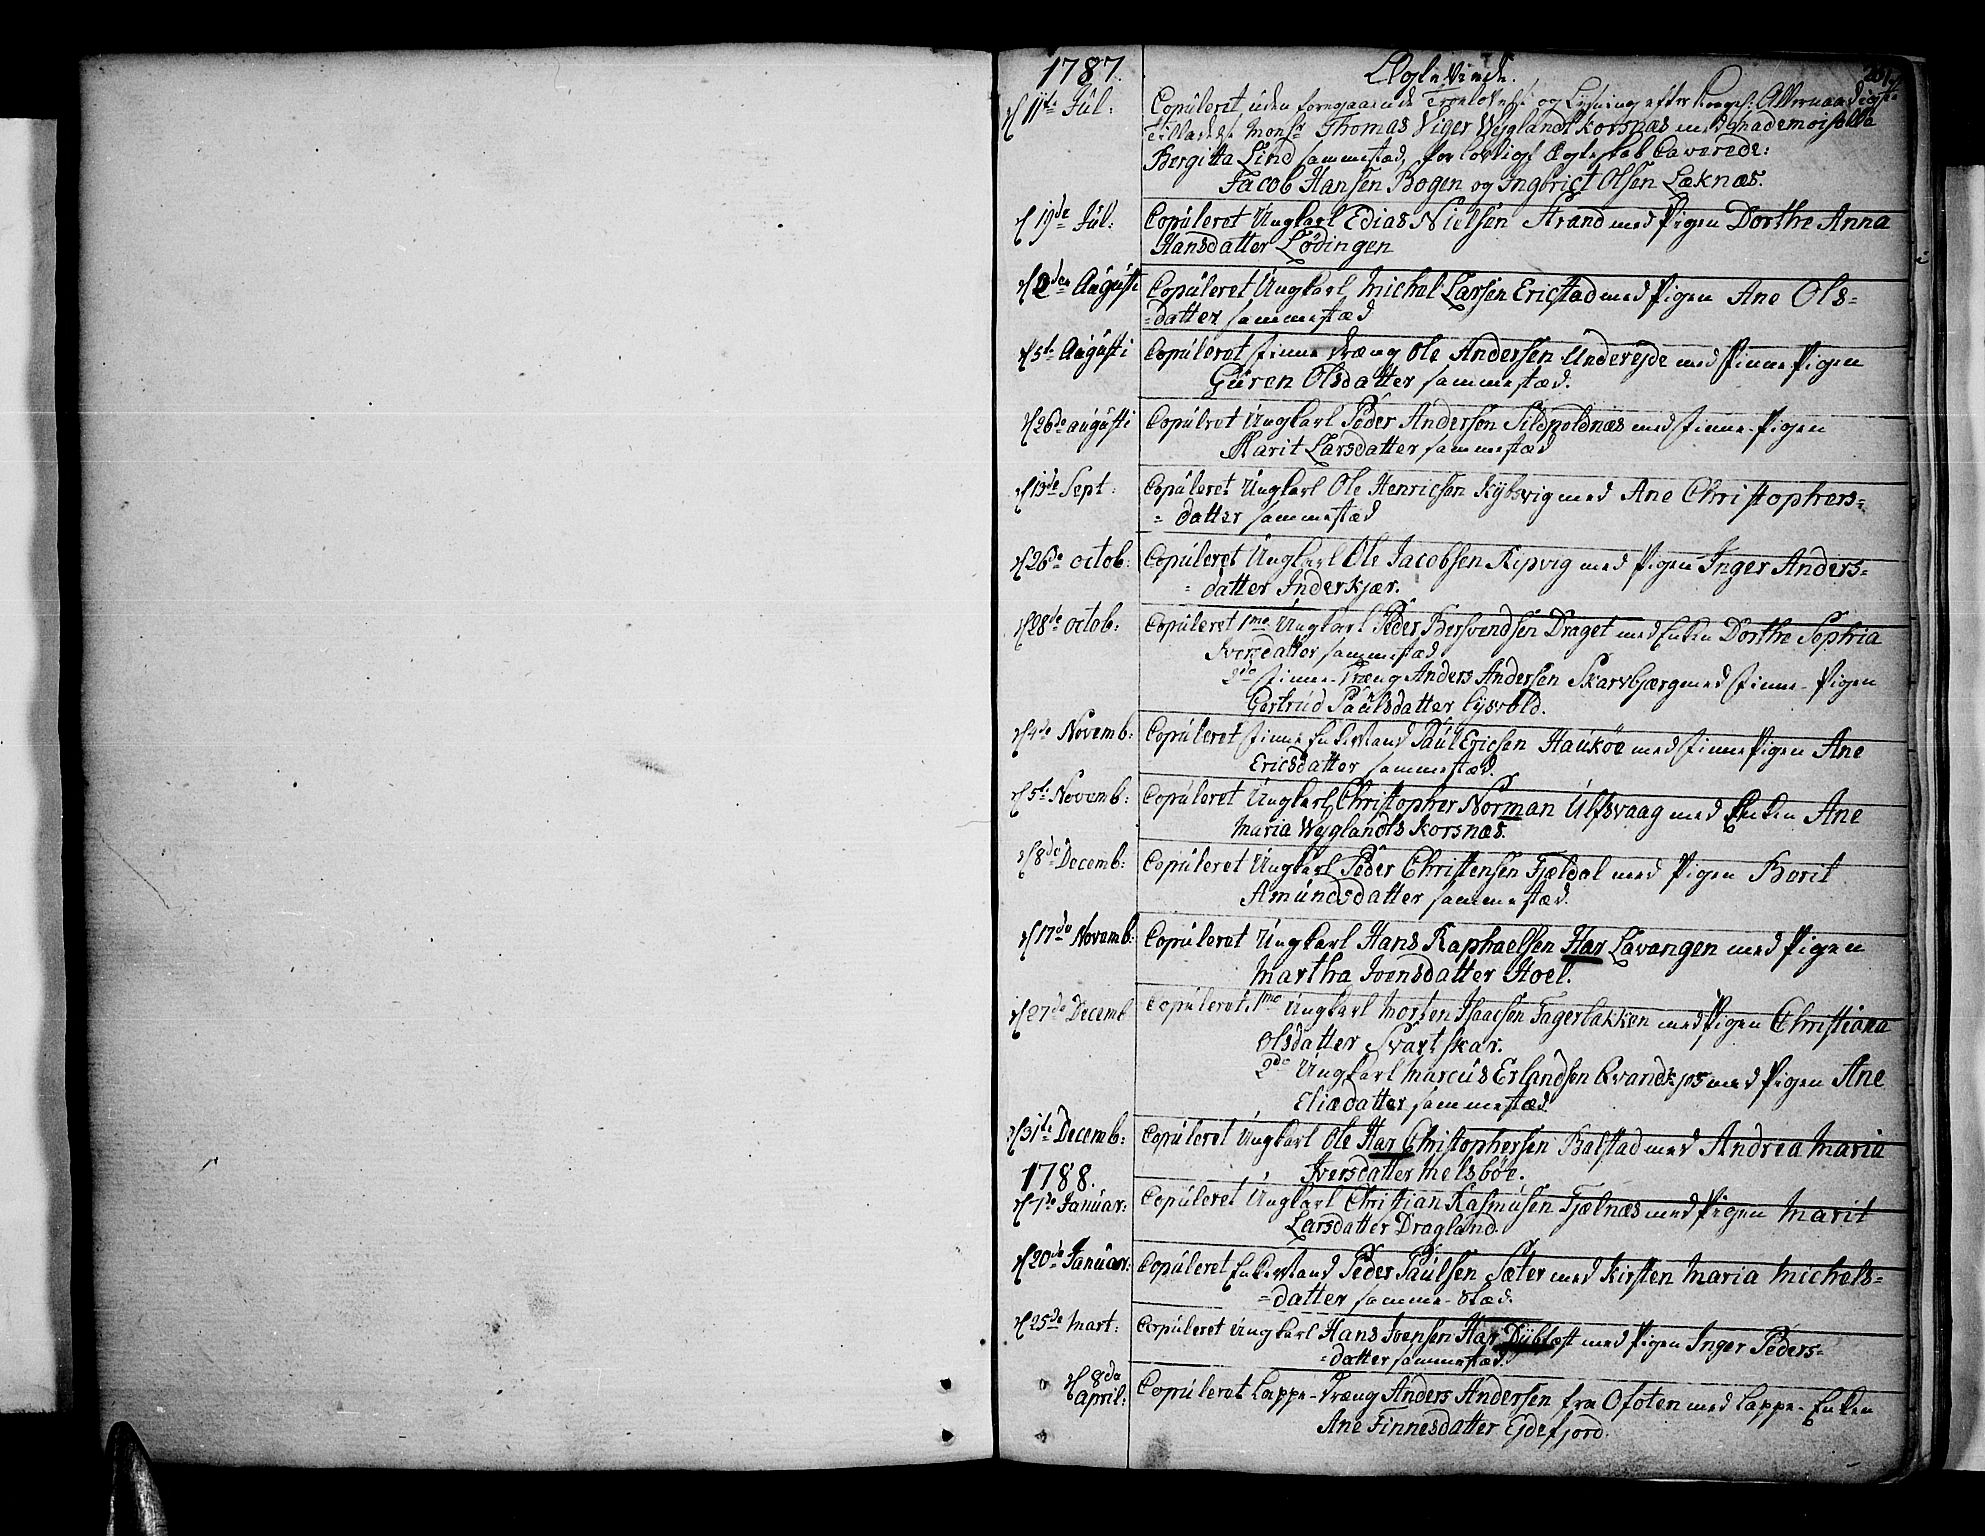 1787. Ægteviede.
d 11te Jul: Copuleret uden foregaaende Trolovelse og Lysning efter Kongel: Allernaadigste
Tilladelse Monsr Thomas Viger Wyglandt Korsnæs med Mademoiselle
Bergitta Lind sammestæd, for lovligt Ægteskab Caverede:
Jacob Hansen Bogen og Ingbrict Olsen Læknæs.
d 19de Jul: Copuleret Ungkarl Edias Nielsen Strand med Pigen Dorthe Anna
Hansdatter Lödingen
d 2den Augusti Copuleret Ungkarl Michel Larsen Ericstad med Pigen Ane Ols-
-datter sammestæd
d 5te Augusti Copuleret Finne Dræng Ole Andersen Undereyde med Finne Pigen
Guren Olsdatter sammestæd.
d 26de augusti Copulret Ungkarl Peder Andersen Sildpoldnæs med Finne-Pigen
Marit Larsdatter sammestæd
d 13de Sept: Copuleret Ungkarl Ole Henricsen Kybsvig med Ane Christophers-
-datter sammestæd
d 26de octob: Copuleret Ungkarl Ole Jacobsen Ripvig med Pigen Inger Anders-
-datter Inderkjær.
d 28de octob: Copuleret 1mo Ungkarl Peder Bersvendsen Draget med Enken Dorthe Sophia
Iversdatter sammestæd
2do Finne-Dræng Anders Andersen Skarvbjærg med Finne-Pigen
Gertrud Paulsdatter Lysvold.
d 4de Novemb: Copuleret Finne Enkemand Paul Ericsen Haukøe med Finne Pigen Ane
Ericsdatter sammestæd.
d 5te Novemb: Copuleret Ungkarl Christopher Norman Ulfsvaag med Enken Ane
Maria Wyglandts Korsnæs.
d 8de Decemb: Copuleret Ungkarl Peder Christensen Fjeldal med Pigen Borit
Amundsdatter sammestæd.
d 17de Novemb: Copuleret Ungkarl Hans Raphaelsen Har Lavangen med Pigen
Martha Ivensdatter Hoel.
d 27de Decemb Copuleret: 1mo Ungkarl Morten Isaacsen Fagerbakken med Pigen Christiana
Olsdatter Svartskar.
2do Ungkarl Marcus Erlandsen Qvandkjos med Pigen Ane
Eliædatter sammestæd
d 31te Decemb: Copuleret Ungkarl Ole Har Christophersen Balstad med Andrea Maria
Iversdatter Melsböe.
1788.
d 1te Januar: Copuleret Ungkarl Christian Rasmusen Fjælnæs med Pigen Marit
Larsdatter Dragland.
d 20de Januar: Copuleret Enkemand Peder Paulsen Sæter med Kirsten Maria Michels-
-datter samme-stæd.
d 25de Mart: Copuleret Ungkarl Hans Ivensen Har Dybtæft med Pigen Inger Peders-
-datter sammestæd
d 8de April: Copuleret Lappe-Dræng Anders Andersen fra Ofoten med Lappe-Enken
Ane Finnesdatter Eidefjord.